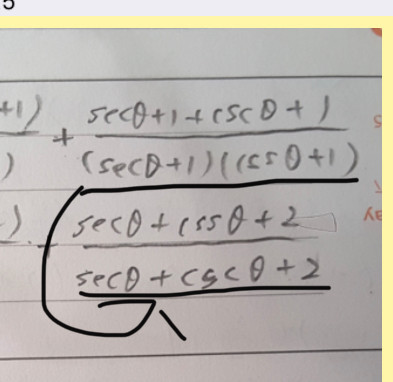 5
+1) + secθ+1+cscθ+1
) (secθ+1)(cscθ+1)
). secθ+cscθ+2
secθ+cscθ+2